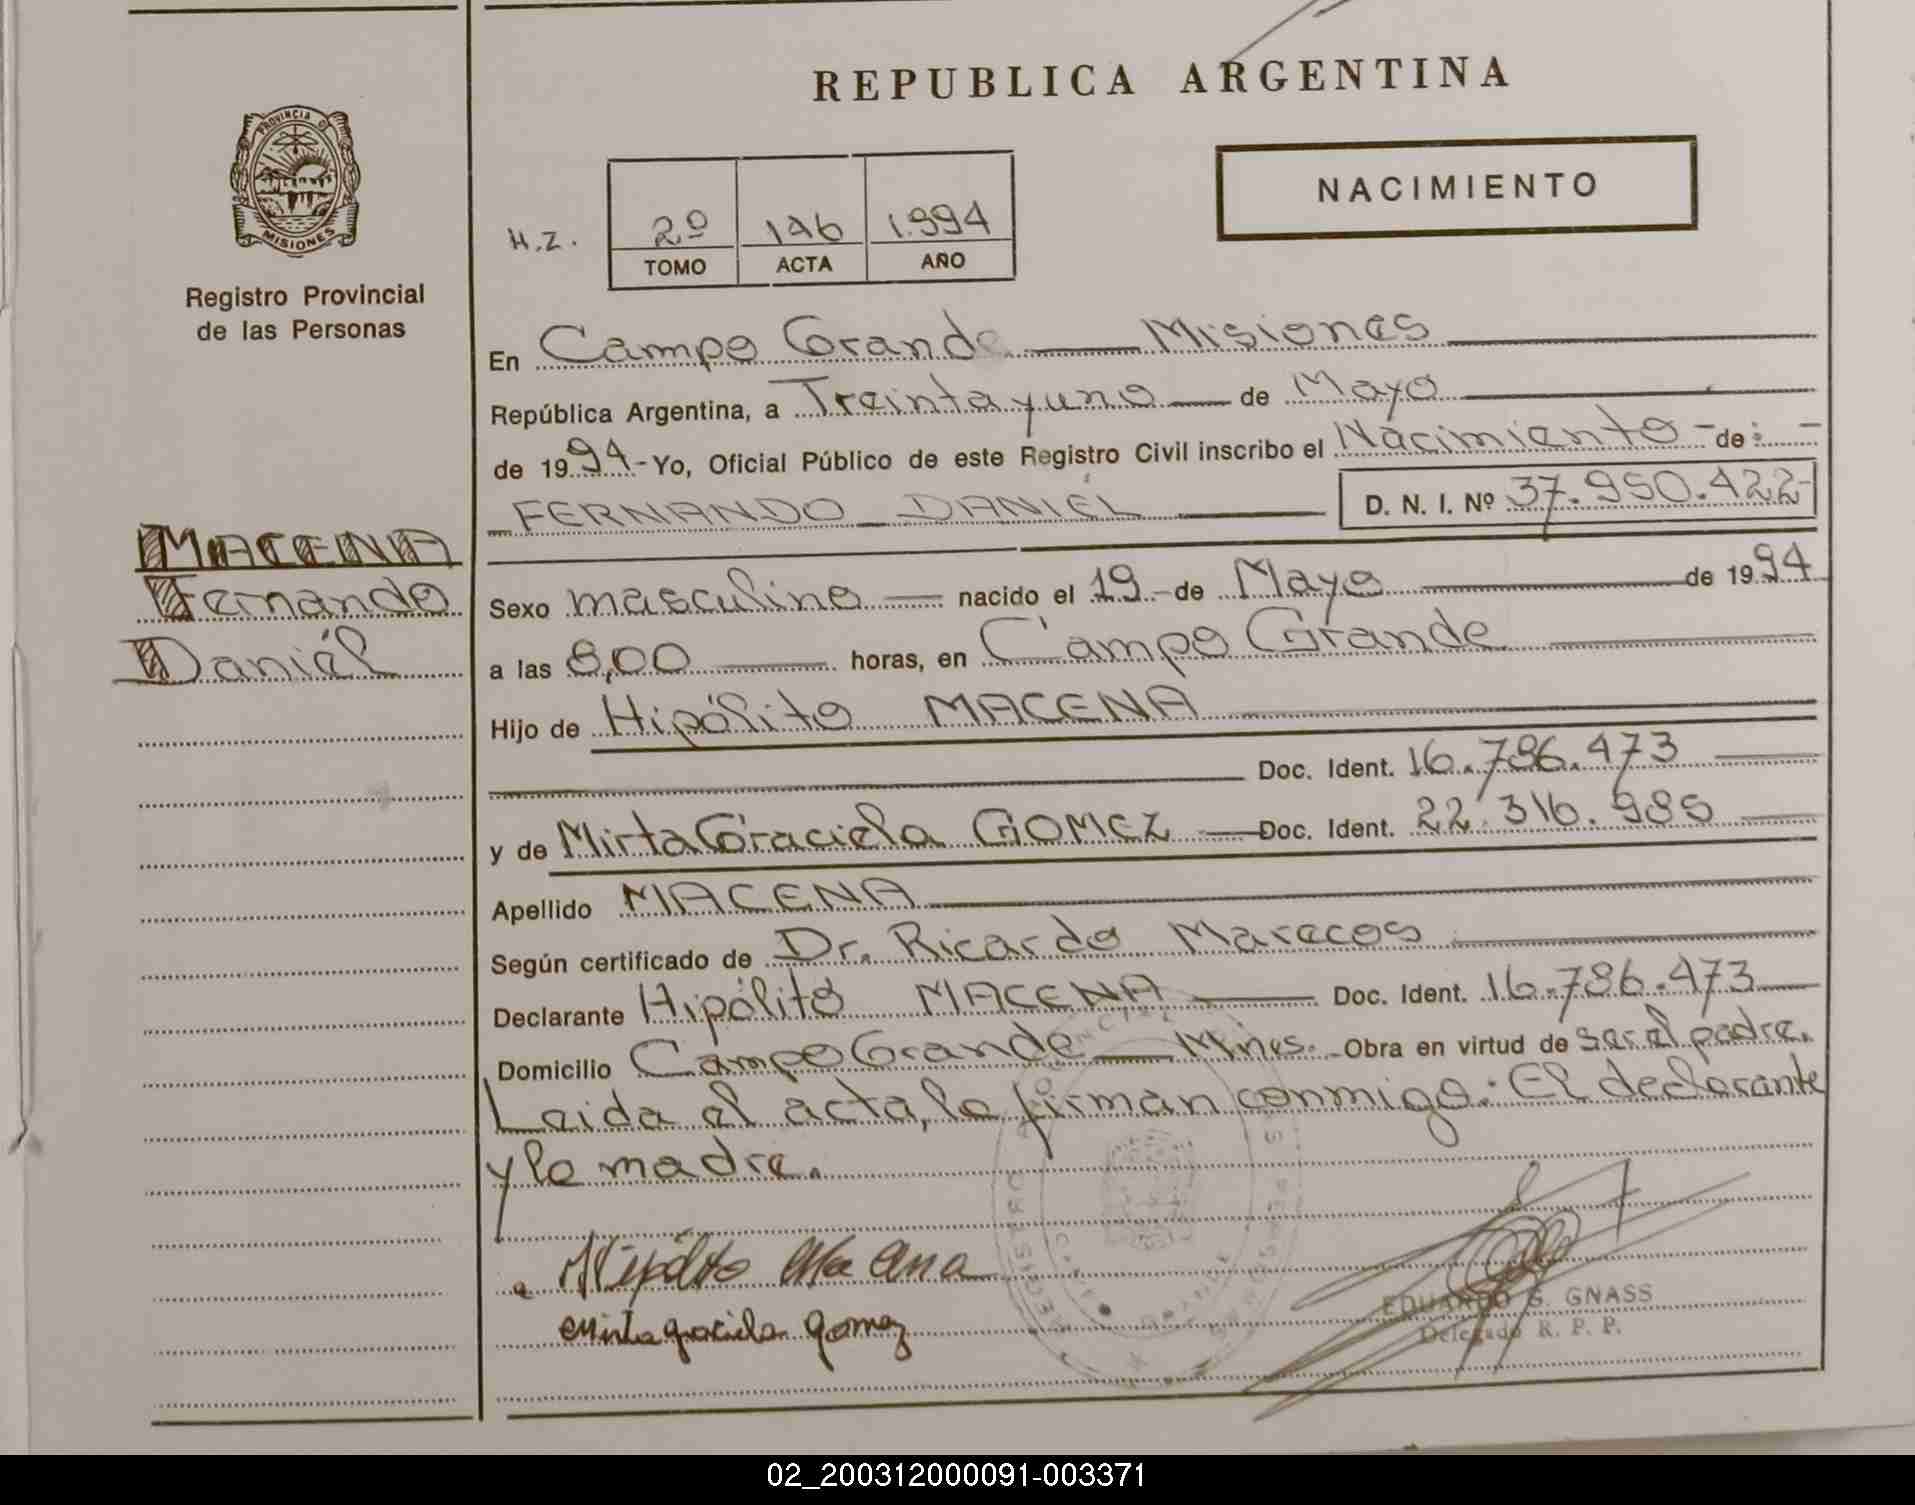 REPUBLICA ARGENTINA
PROVINCIA D
MISIONES
Registro Provincial
de las Personas
NACIMIENTO
H.Z.
2º 196 1.994
TOMO ACTA AÑO
En Campo Grande — Misiones
República Argentina, a Treinta y uno — de Mayo
de 1994 - Yo, Oficial Público de este Registro Civil inscribo el Nacimiento - de: -
FERNANDO DANIEL
D. N. I. Nº 37.950.422-
MACENA
Fernando
Daniél
Sexo masculino — nacido el 19 - de Mayo de 1994
a las 8,00 horas, en Campo Grande
Hijo de Hipólito MACENA
Doc. Ident. 16.786.473
y de Mirta Graciela GOMEZ — Doc. Ident. 22.316.985
Apellido MACENA
Según certificado de Dr. Ricardo Marecos
Declarante Hipólito MACENA — Doc. Ident. 16.786.473
Domicilio Campo Grande — Mnes. - Obra en virtud de ser el padre.
Leida el acta, la firman conmigo: El declarante
y la madre.
Hipólito Macena
mirta graciela gomez
EDUARDO G. GNASS
Delegado R. P. P.
02_200312000091-003371